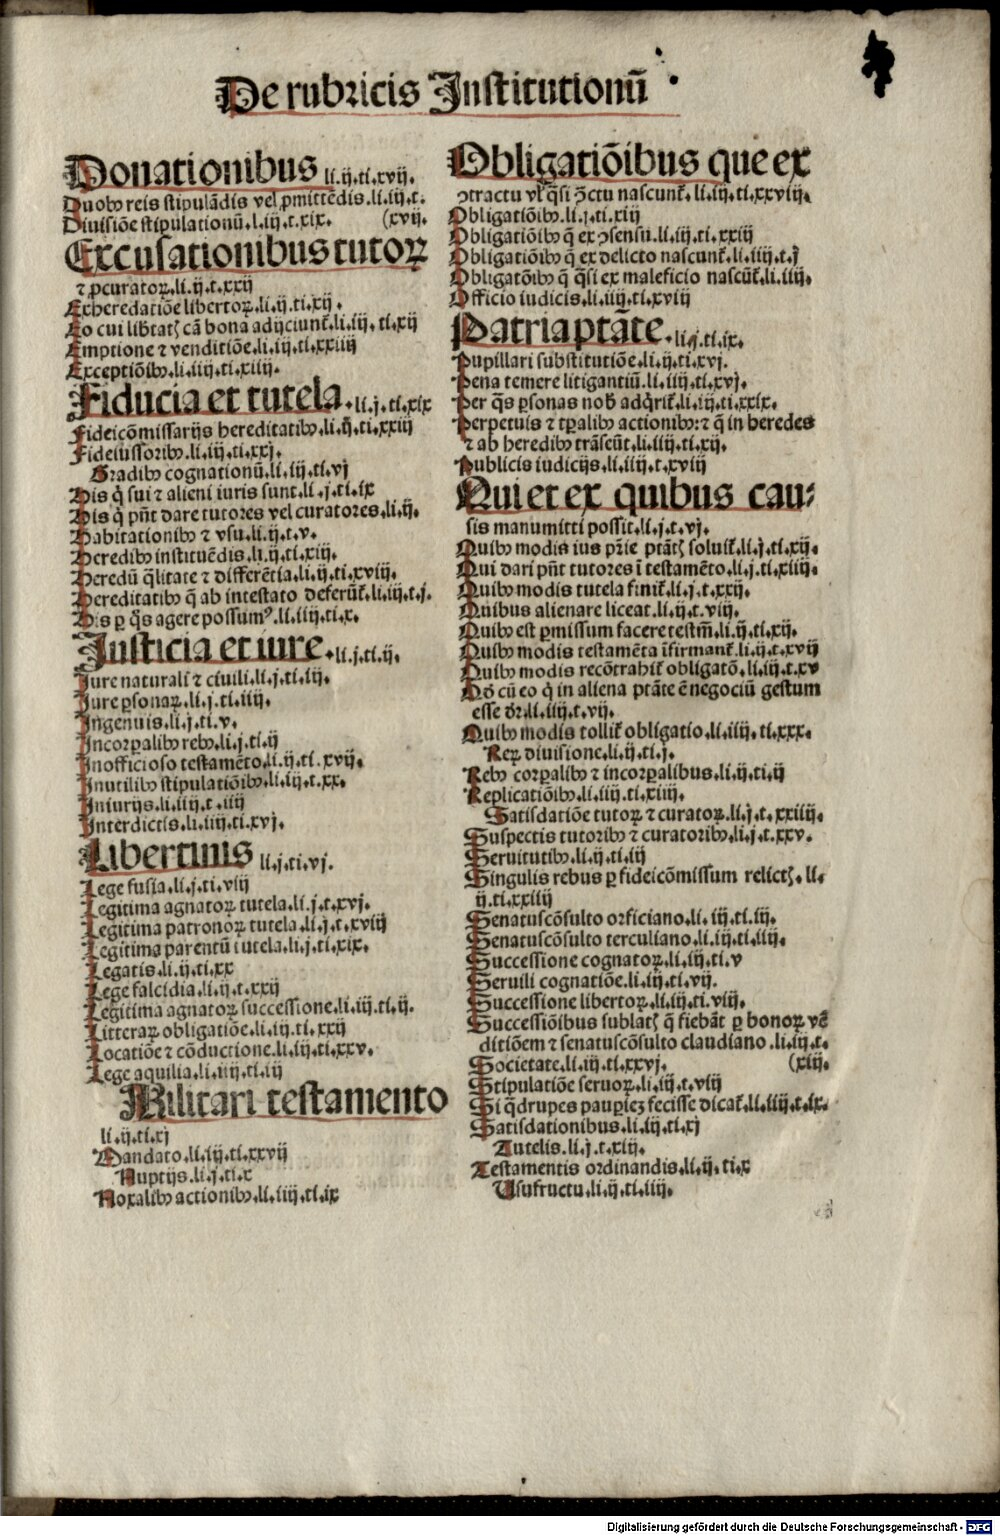 De rubricis Institutionū
Donationibus li.ij.ti.xvij.
Duobꝰ reis stipulādis vel ꝓmittēdis.li.iij.t.
Diuisiōe stipulationū.l.iij.t.xix. (xvij.
Excusationibus tutoꝝ
⁊ ꝓcuratoꝝ.li.ij.t.xxij
Exheredatiōe libertoꝝ.li.ij.ti.xij.
Eo cui lib̄tatꝭ cā bona adijciunt̄.li.iij.ti.xij
Emptione ⁊ venditiōe.li.iij.ti.xxiiij
Exceptiōibꝰ.li.iiij.ti.xiiij.
Fiducia et tutela.li.j.ti.xix
Fideicōmissarijs hereditatibꝰ.li.ij.ti.xxiij
Fideiussoribꝰ.li.iij.ti.xxj.
Gradibꝰ cognationū.li.iij.ti.vj
His q̇ sui ⁊ alieni iuris sunt.li.j.ti.ix
His q̇ pn̄t dare tutores vel curatores.li.ij.
Habitationibꝰ ⁊ vsu.li.ij.t.v.
Heredibꝰ instituēdis.li.ij.ti.xiij.
Heredū q̄litate ⁊ differētia.li.ij.ti.xviij.
Hereditatibꝰ q̄ ab intestato deferūt̄.li.iij.t.j.
His ꝑ q̄s agere possumꝰ.li.iiij.ti.x.
Justicia et iure.li.j.ti.ij.
Jure naturali ⁊ ciuili.li.j.ti.iij.
Jure ꝑsonaꝝ.li.j.ti.iiij.
Ingenuis.li.j.ti.v.
Incorꝑalibꝰ rebꝰ.li.j.ti.ij
Inofficioso testamēto.li.ij.ti.xvij.
Inutilibꝰ stipulatiōibꝰ.li.iij.t.xx.
Iniurijs.li.iiij.t.iiij
Interdictis.li.iiij.ti.xvj.
Libertinis li.j.ti.vj.
Lege fusia.li.j.ti.viij
Legitima agnatoꝝ tutela.li.j.t.xvj.
Legitima patronoꝝ tutela.li.j.t.xviij
Legitima parentū tutela.li.j.ti.xix.
Legatis.li.ij.ti.xx
Lege falcidia.li.ij.t.xxij
Legitima agnatoꝝ successione.li.iij.ti.ij.
Litteraꝝ obligatiōe.li.iij.ti.xxij
Locatiōe ⁊ cōductione.li.iij.ti.xxv.
Lege aquilia.li.iiij.ti.iij
Militari testamento
li.ij.ti.xj
Mandato.li.iij.ti.xxvij
Nuptijs.li.j.ti.x
Noxalibꝰ actionibꝰ.li.iiij.ti.ix
Obligatiōibus que ex
ↄtractu vl̓ q̄si ↄtctu nascunt̄.li.iij.ti.xxviij.
Obligatiōibꝰ.li.j.ti.xiij
Obligatiōibꝰ q̄ ex ↄsensu.li.iij.ti.xxiij
Obligatiōibꝰ q̄ ex delicto nascunt̄.li.iiij.t.j
Obligatōibꝰ q̄ q̄si ex maleficio nascūt̄.li.iiij.
Officio iudicis.li.iiij.ti.xviij
Patria ptāte.li.j.ti.ix.
Pupillari substitutiōe.li.ij.ti.xvj.
Pena temere litigantiū.li.iiij.ti.xvj.
Per q̄s ꝑsonas nob̄ adq̇rit̄.li.iij.ti.xxix.
Perpetuis ⁊ tꝑalibꝰ actionibꝰ:⁊ q̄ in heredes
⁊ ab heredibꝰ trāseūt.li.iiij.ti.xij.
Publicis iudicijs.li.iiij.t.xviij
Qui et ex quibus cau⸗
sis manumitti possit.li.j.t.vj.
Quibꝰ modis ius pr̄ie ptātꝭ soluit̄.li.j.ti.xij.
Qui dari pn̄t tutores ī testamēto.li.j.ti.xiiij.
Quibꝰ modis tutela finit̄.li.j.t.xxij.
Quibus alienare liceat.li.ij.t.viij.
Quibꝰ est ꝑmissum facere testm̄.li.ij.ti.xij.
Quibꝰ modis testamēta īfirmant̄.li.ij.t.xvij
Quibꝰ modis recōtrahit̄ obligatō.li.iij.t.xv
Qō cū eo q̇ in aliena ptāte ē negociū gestum
esse dr̄.li.iiij.t.vij.
Quibꝰ modis tollit̄ obligatio.li.iiij.ti.xxx.
Reꝝ diuisione.li.ij.ti.j.
Rebꝰ corꝑalibꝰ ⁊ incorꝑalibus.li.ij.ti.ij
Replicatiōibꝰ.li.iiij.ti.xiiij.
Satisdatiōe tutoꝝ ⁊ curatoꝝ.li.j.t.xxiiij.
Suspectis tutoribꝰ ⁊ curatoribꝰ.li.j.t.xxv.
Seruitutibꝰ.li.ij.ti.iij
Singulis rebus ꝑ fideicōmissum relictꝭ.li.
ij.ti.xxiiij
Senatuscōsulto orficiano.li.iij.ti.iij.
Senatuscōsulto terculiano.li.iij.ti.iiij.
Successione cognatoꝝ.li.iij.ti.v
Seruili cognatiōe.li.iij.ti.vij.
Successione libertoꝝ.li.iij.ti.viij.
Successiōibus sublatꝭ q̄ fiebāt ꝑ bonoꝝ vē
ditiōem ⁊ senatuscōsulto claudiano.li.iij.t.
Societate.li.iij.ti.xxvj. (xiij.
Stipulatiōe seruoꝝ.li.iij.t.viij
Si q̄drupes pauꝑiez fecisse dicat̄.li.iiij.t.ix.
Satisdationibus.li.iij.ti.xj
Tutelis.li.j.t.xiij.
Testamentis ordinandis.li.ij.ti.x
Usufructu.li.ij.ti.iiij.
Digitalisierung gefördert durch die Deutsche Forschungsgemeinschaft - DFG